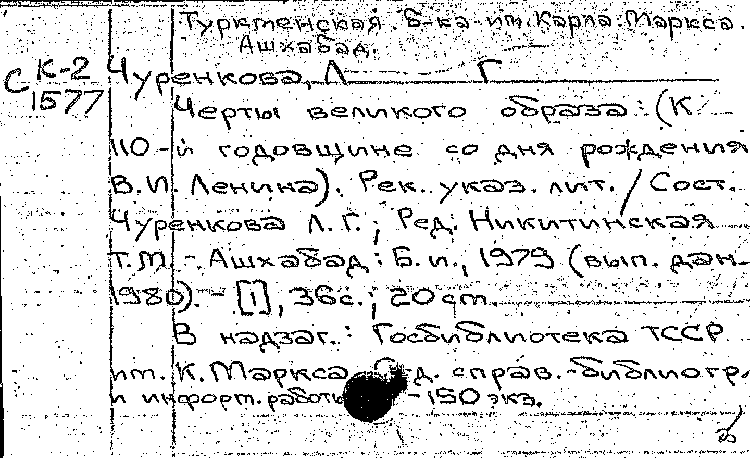 Туркменская б-ка им. Карла Маркса.
Ашхабад.
С К-2
1577
Чуренкова, Л Г
Черты великого образа: (К
110-й годовщине со дня рождения
В.И. Ленина). Рек. указ. лит. / Сост.
Чуренкова Л.Г.; Ред. Никитинская
Т.М. - Ашхабад: Б.и., 1979 (вып. дан.
1980). - [1], 36с.; 20 cm.
В надзаг.: Госбиблиотека ТССР
им. К. Маркса. справ.-библиогр.
и информ. работы - 150 экз.